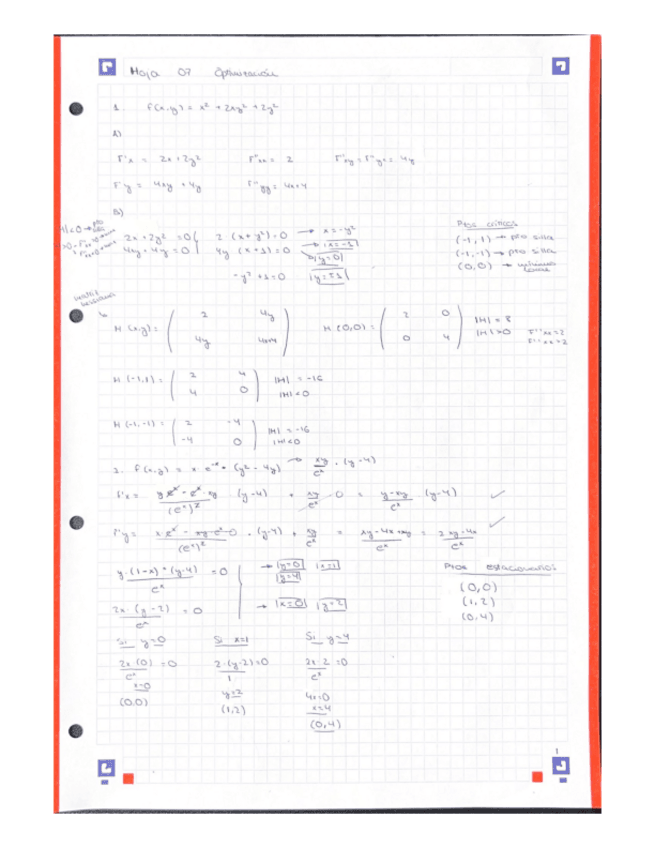 Hoja 07 Optimización
1. f(x,y) = x² + 2xy² + 2y²
A)
F'x = 2x+2y² F''xx = 2 F''xy = F''yx = 4y
F'y = 4xy + 4y F''yy = 4x+4
B)
2x + 2y² = 0 2 (x+y²)=0 → x=-y²
4xy + 4y = 0 4y (x+1)=0 → x=-1
y=0
-y² +1=0 y=±1
Ptos críticos
(-1,1) → pto silla
(-1,-1) → pto silla
(0,0) → mínimo local
matriz hessiana
H (x,y) = ( 2 4y
4y 4x+4 )
H (0,0) = ( 2 0
0 4 )
|H| = 8
|H|>0 F''xx=2
H (-1,1) = ( 2 4
4 0 )
|H| = -16
|H|<0
H (-1,-1) = ( 2 -4
-4 0 )
|H| = -16
|H|<0
2. f(x,y) = x e⁻ˣ · (y² - 4y) → xy/eˣ · (y-4)
f'x = (y eˣ - eˣ · xy)/(eˣ)² (y-4) + xy/eˣ · 0 = (y-xy)/eˣ (y-4)
f'y = (x eˣ - xy·eˣ·0)/(eˣ)² · (y-4) + xy/eˣ = (xy-4x+xy)/eˣ = (2xy-4x)/eˣ
y·(1-x)·(y-4)/eˣ = 0 → y=0 x=1
y=4
2x·(y-2)/eˣ = 0 → x=0 y=2
Ptos estacionarios
(0,0)
(1,2)
(0,4)
Si y=0 Si x=1 Si y=4
2x·(0)/eˣ = 0 2·(y-2)=0/1 2x·2/eˣ = 0
x=0 y=2 4x=0
(0,0) (1,2) x=4
(0,4)
1